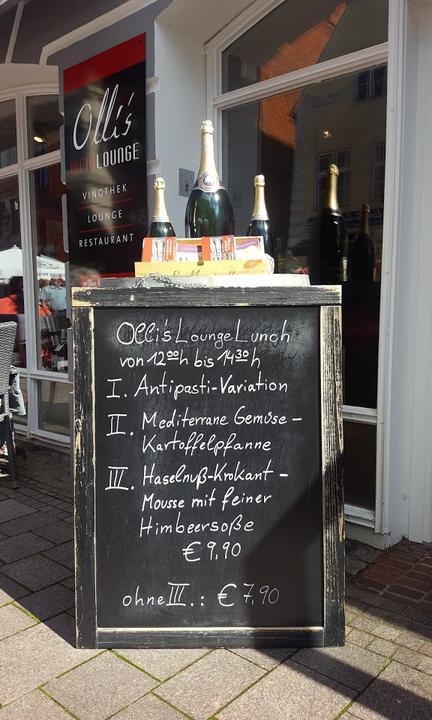 Olli's
LOUNGE
VINOTHEK
LOUNGE
RESTAURANT
Olli's Lounge Lunch
von 12⁰⁰h bis 14³⁰h
I. Antipasti-Variation
II. Mediterrane Gemüse-
Kartoffelpfanne
III. Haselnuß-Krokant-
Mousse mit feiner
Himbeersoße
€ 9,90
ohne III.: € 7,90